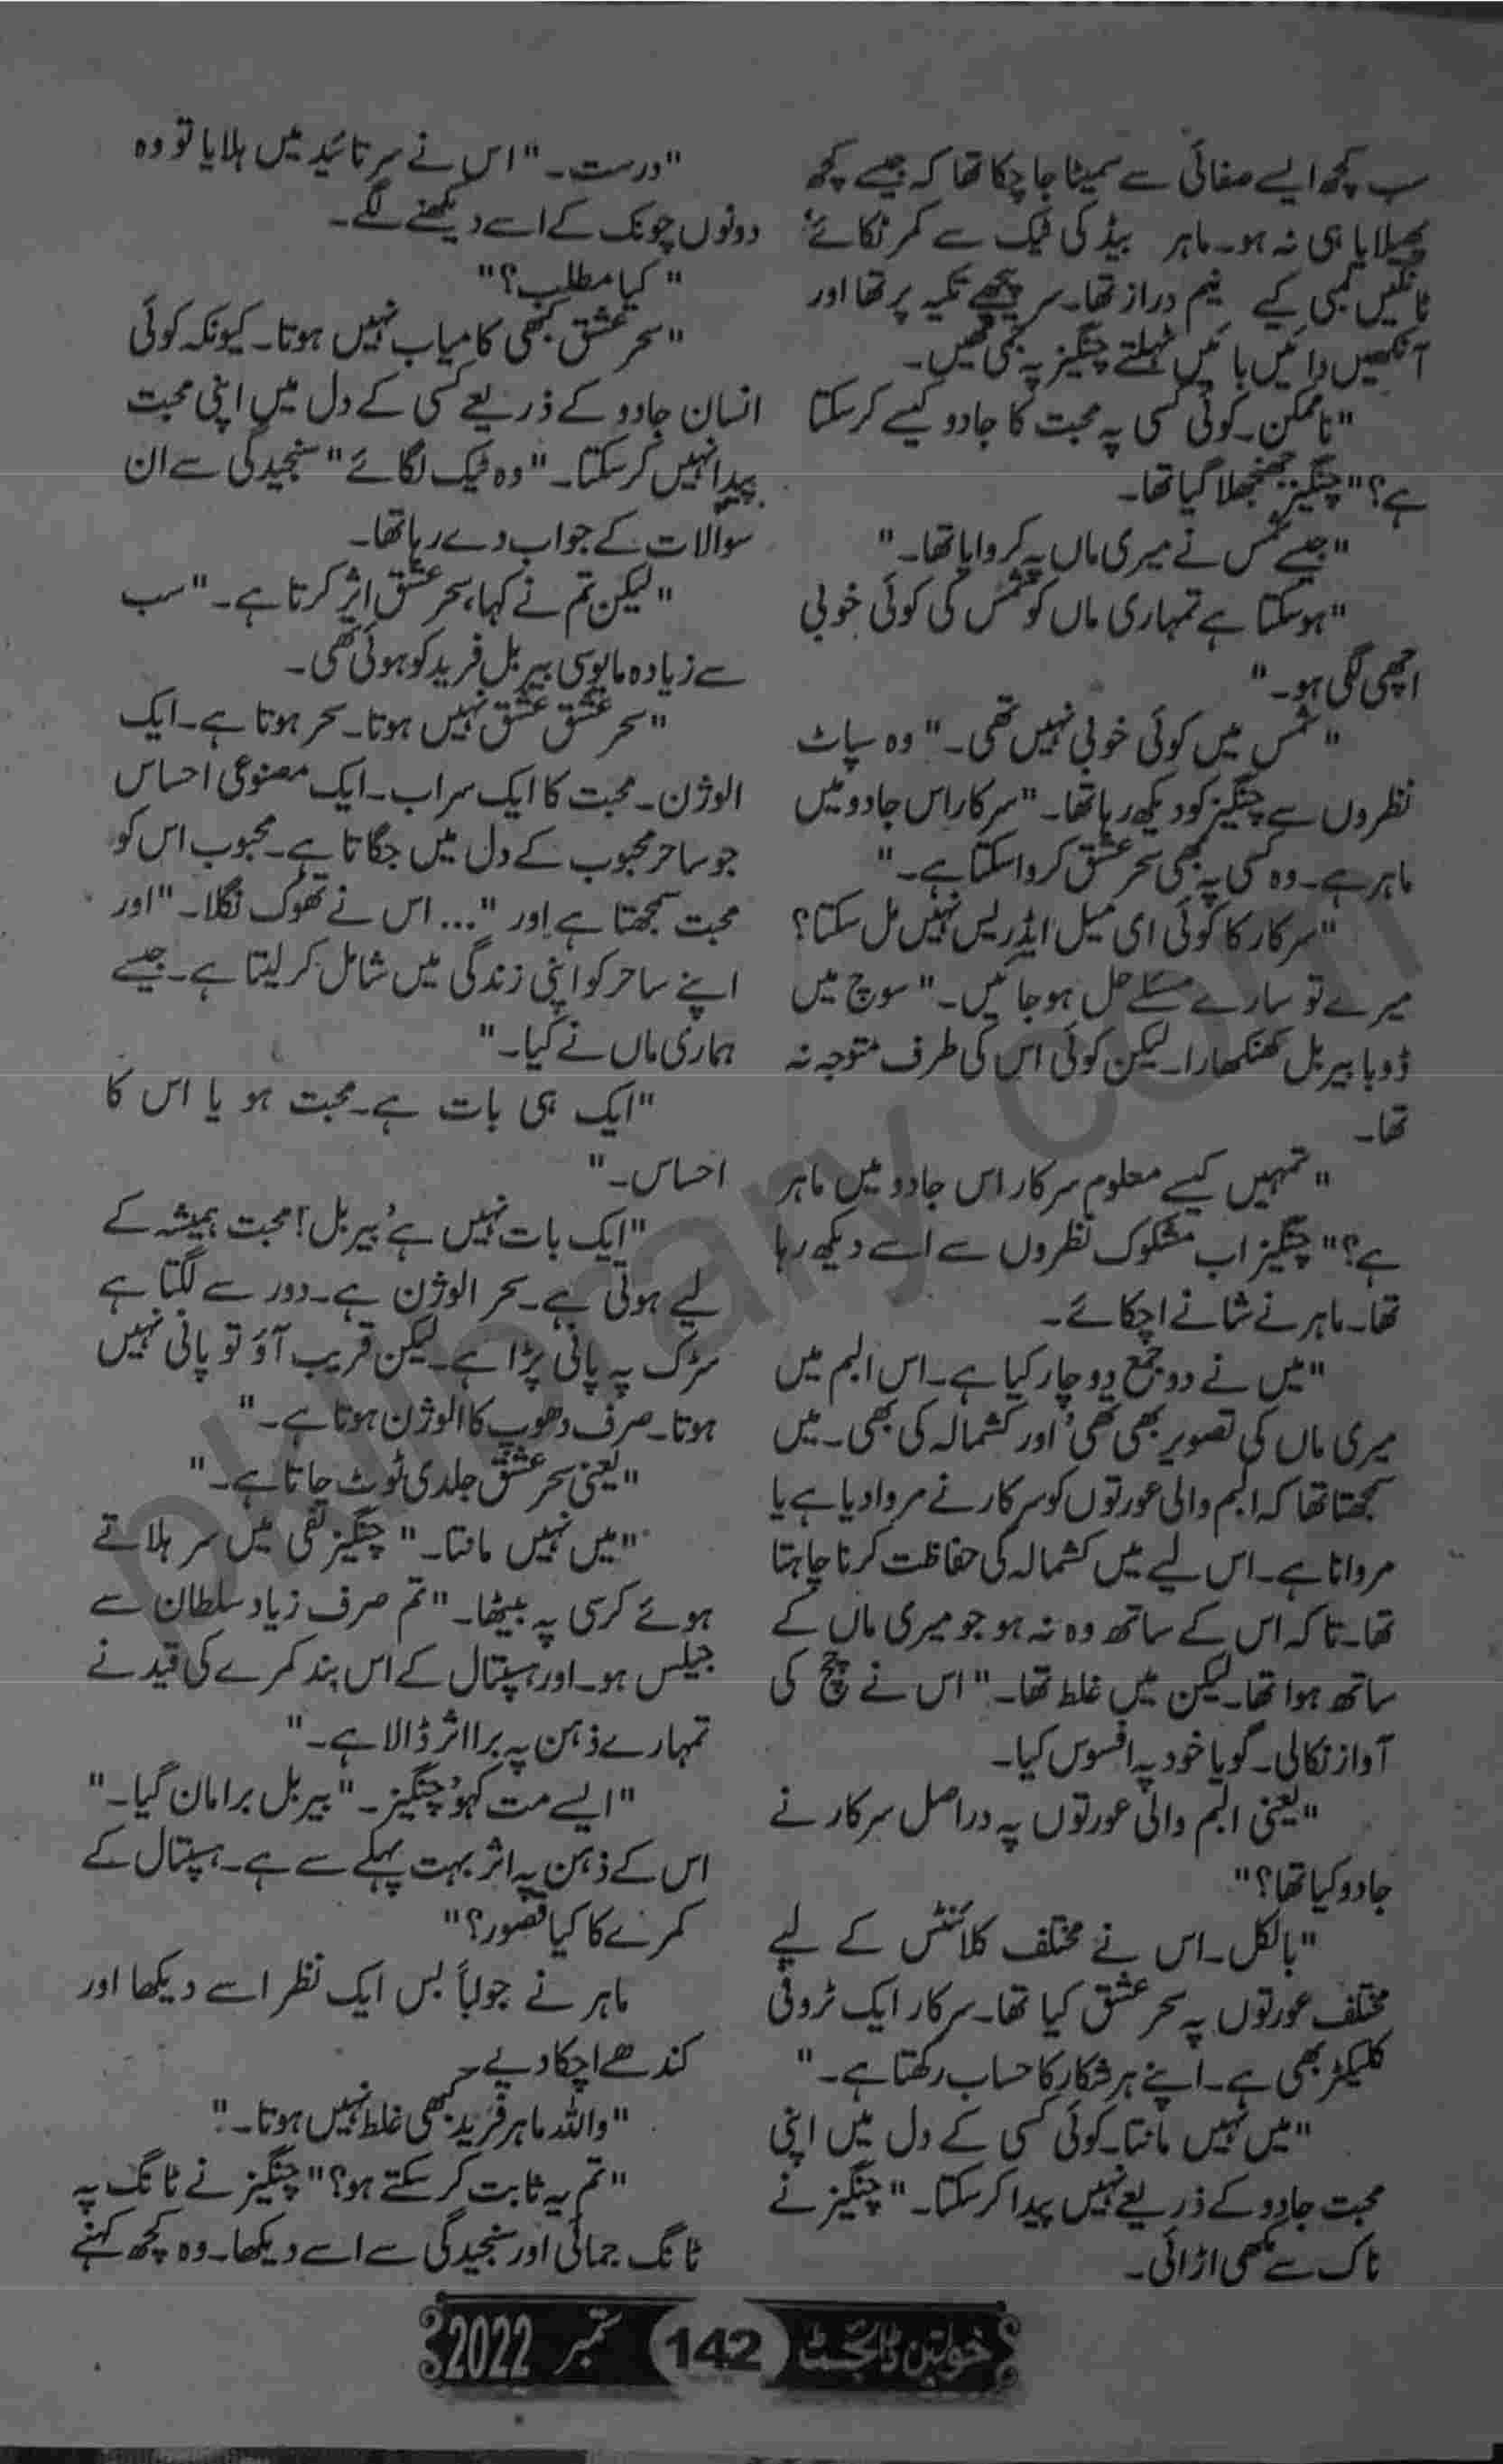 سب کچھ ایسے صفائی سے سمیٹا جا چکا تھا کہ جیسے کچھ
پھیلایا ہی نہ ہو۔ ماہر بیڈ کی ٹیک سے کمر ٹکائے،
ٹانگیں لمبی کیے نیم دراز تھا۔ سر پیچھے تکیہ پر تھا اور
آنکھیں دائیں بائیں ٹہلتے چنگیز پہ جمی تھیں۔
"ناممکن۔ کوئی کسی پہ محبت کا جادو کیسے کر سکتا
ہے؟" چنگیز جھنجھلا گیا تھا۔
"جیسے شمس نے میری ماں پہ کروایا تھا۔"
"ہو سکتا ہے تمہاری ماں کو شمس کی کوئی خوبی
اچھی لگی ہو۔"
"شمس میں کوئی خوبی نہیں تھی۔" وہ سپاٹ
نظروں سے چنگیز کو دیکھ رہا تھا۔ "سرکار اس جادو میں
ماہر ہے۔ وہ کسی پہ بھی سحر عشق کروا سکتا ہے۔"
"سرکار کا کوئی ای میل ایڈریس نہیں مل سکتا؟
میرے تو سارے مسئلے حل ہو جائیں۔" سوچ میں
ڈوبا بیربل کھنکھارا۔ لیکن کوئی اس کی طرف متوجہ نہ
تھا۔
"تمہیں کیسے معلوم سرکار اس جادو میں ماہر
ہے؟" چنگیز اب مشکوک نظروں سے اسے دیکھ رہا
تھا۔ ماہر نے شانے اچکائے۔
"میں نے دو جمع دو چار کیا ہے۔ اس البم میں
میری ماں کی تصویر بھی تھی، اور کشمالہ کی بھی۔ میں
سمجھتا تھا کہ البم والی عورتوں کو سرکار نے مروا دیا ہے یا
مروانا ہے۔ اس لیے میں کشمالہ کی حفاظت کرنا چاہتا
تھا۔ تاکہ اس کے ساتھ وہ نہ ہو جو میری ماں کے
ساتھ ہوا تھا۔ لیکن میں غلط تھا۔" اس نے چچ کی
آواز نکالی۔ گویا خود پہ افسوس کیا۔
"یعنی البم والی عورتوں پہ دراصل سرکار نے
جادو کیا تھا؟"
"بالکل۔ اس نے مختلف کلائنٹس کے لیے
مختلف عورتوں پہ سحر عشق کیا تھا۔ سرکار ایک ٹروفی
کلیکٹر بھی ہے۔ اپنے ہر شکار کا حساب رکھتا ہے۔"
"میں نہیں مانتا۔ کوئی کسی کے دل میں اپنی
محبت جادو کے ذریعے نہیں پیدا کر سکتا۔" چنگیز نے
ناک سے مکھی اڑائی۔
"درست۔" اس نے سر تائید میں ہلایا تو وہ
دونوں چونک کے اسے دیکھنے لگے۔
"کیا مطلب؟"
"سحر عشق کبھی کامیاب نہیں ہوتا۔ کیونکہ کوئی
انسان جادو کے ذریعے کسی کے دل میں اپنی محبت
پیدا نہیں کر سکتا۔" وہ ٹیک لگائے" سنجیدگی سے ان
سوالات کے جواب دے رہا تھا۔
"لیکن تم نے کہا، سحر عشق اثر کرتا ہے۔" سب
سے زیادہ مایوسی بیربل فرید کو ہوئی تھی۔
"سحر عشق عشق نہیں ہوتا۔ سحر ہوتا ہے۔ ایک
الوژن۔ محبت کا ایک سراب۔ ایک مصنوعی احساس
جو ساحر محبوب کے دل میں جگاتا ہے۔ محبوب اس کو
محبت سمجھتا ہے اور "... اس نے تھوک نگلا۔ "اور
اپنے ساحر کو اپنی زندگی میں شامل کر لیتا ہے۔ جیسے
ہماری ماں نے کیا۔"
"ایک ہی بات ہے۔ محبت ہو یا اس کا
احساس۔"
"ایک بات نہیں ہے، بیربل! محبت ہمیشہ کے
لیے ہوتی ہے۔ سحر الوژن ہے۔ دور سے لگتا ہے
سڑک پہ پانی پڑا ہے۔ لیکن قریب آؤ تو پانی نہیں
ہوتا۔ صرف دھوپ کا الوژن ہوتا ہے۔"
"یعنی سحر عشق جلدی ٹوٹ جاتا ہے۔"
"میں نہیں مانتا۔" چنگیز نفی میں سر ہلاتے
ہوئے کرسی پہ بیٹھا۔ "تم صرف زیاد سلطان سے
جیلس ہو۔ اور ہسپتال کے اس بند کمرے کی قید نے
تمہارے ذہن پہ برا اثر ڈالا ہے۔"
"ایسے مت کہو، چنگیز۔" بیربل برا مان گیا۔"
اس کے ذہن پہ اثر بہت پہلے سے ہے۔ ہسپتال کے
کمرے کا کیا قصور؟"
ماہر نے جواباً بس ایک نظر اسے دیکھا اور
کندھے اچکا دیے۔
"واللہ ماہر فرید کبھی غلط نہیں ہوتا۔"
"تم یہ ثابت کر سکتے ہو؟" چنگیز نے ٹانگ پہ
ٹانگ جمائی اور سنجیدگی سے اسے دیکھا۔ وہ کچھ کہنے
خواتین ڈائجسٹ 142 ستمبر 2022
pklibrary.com